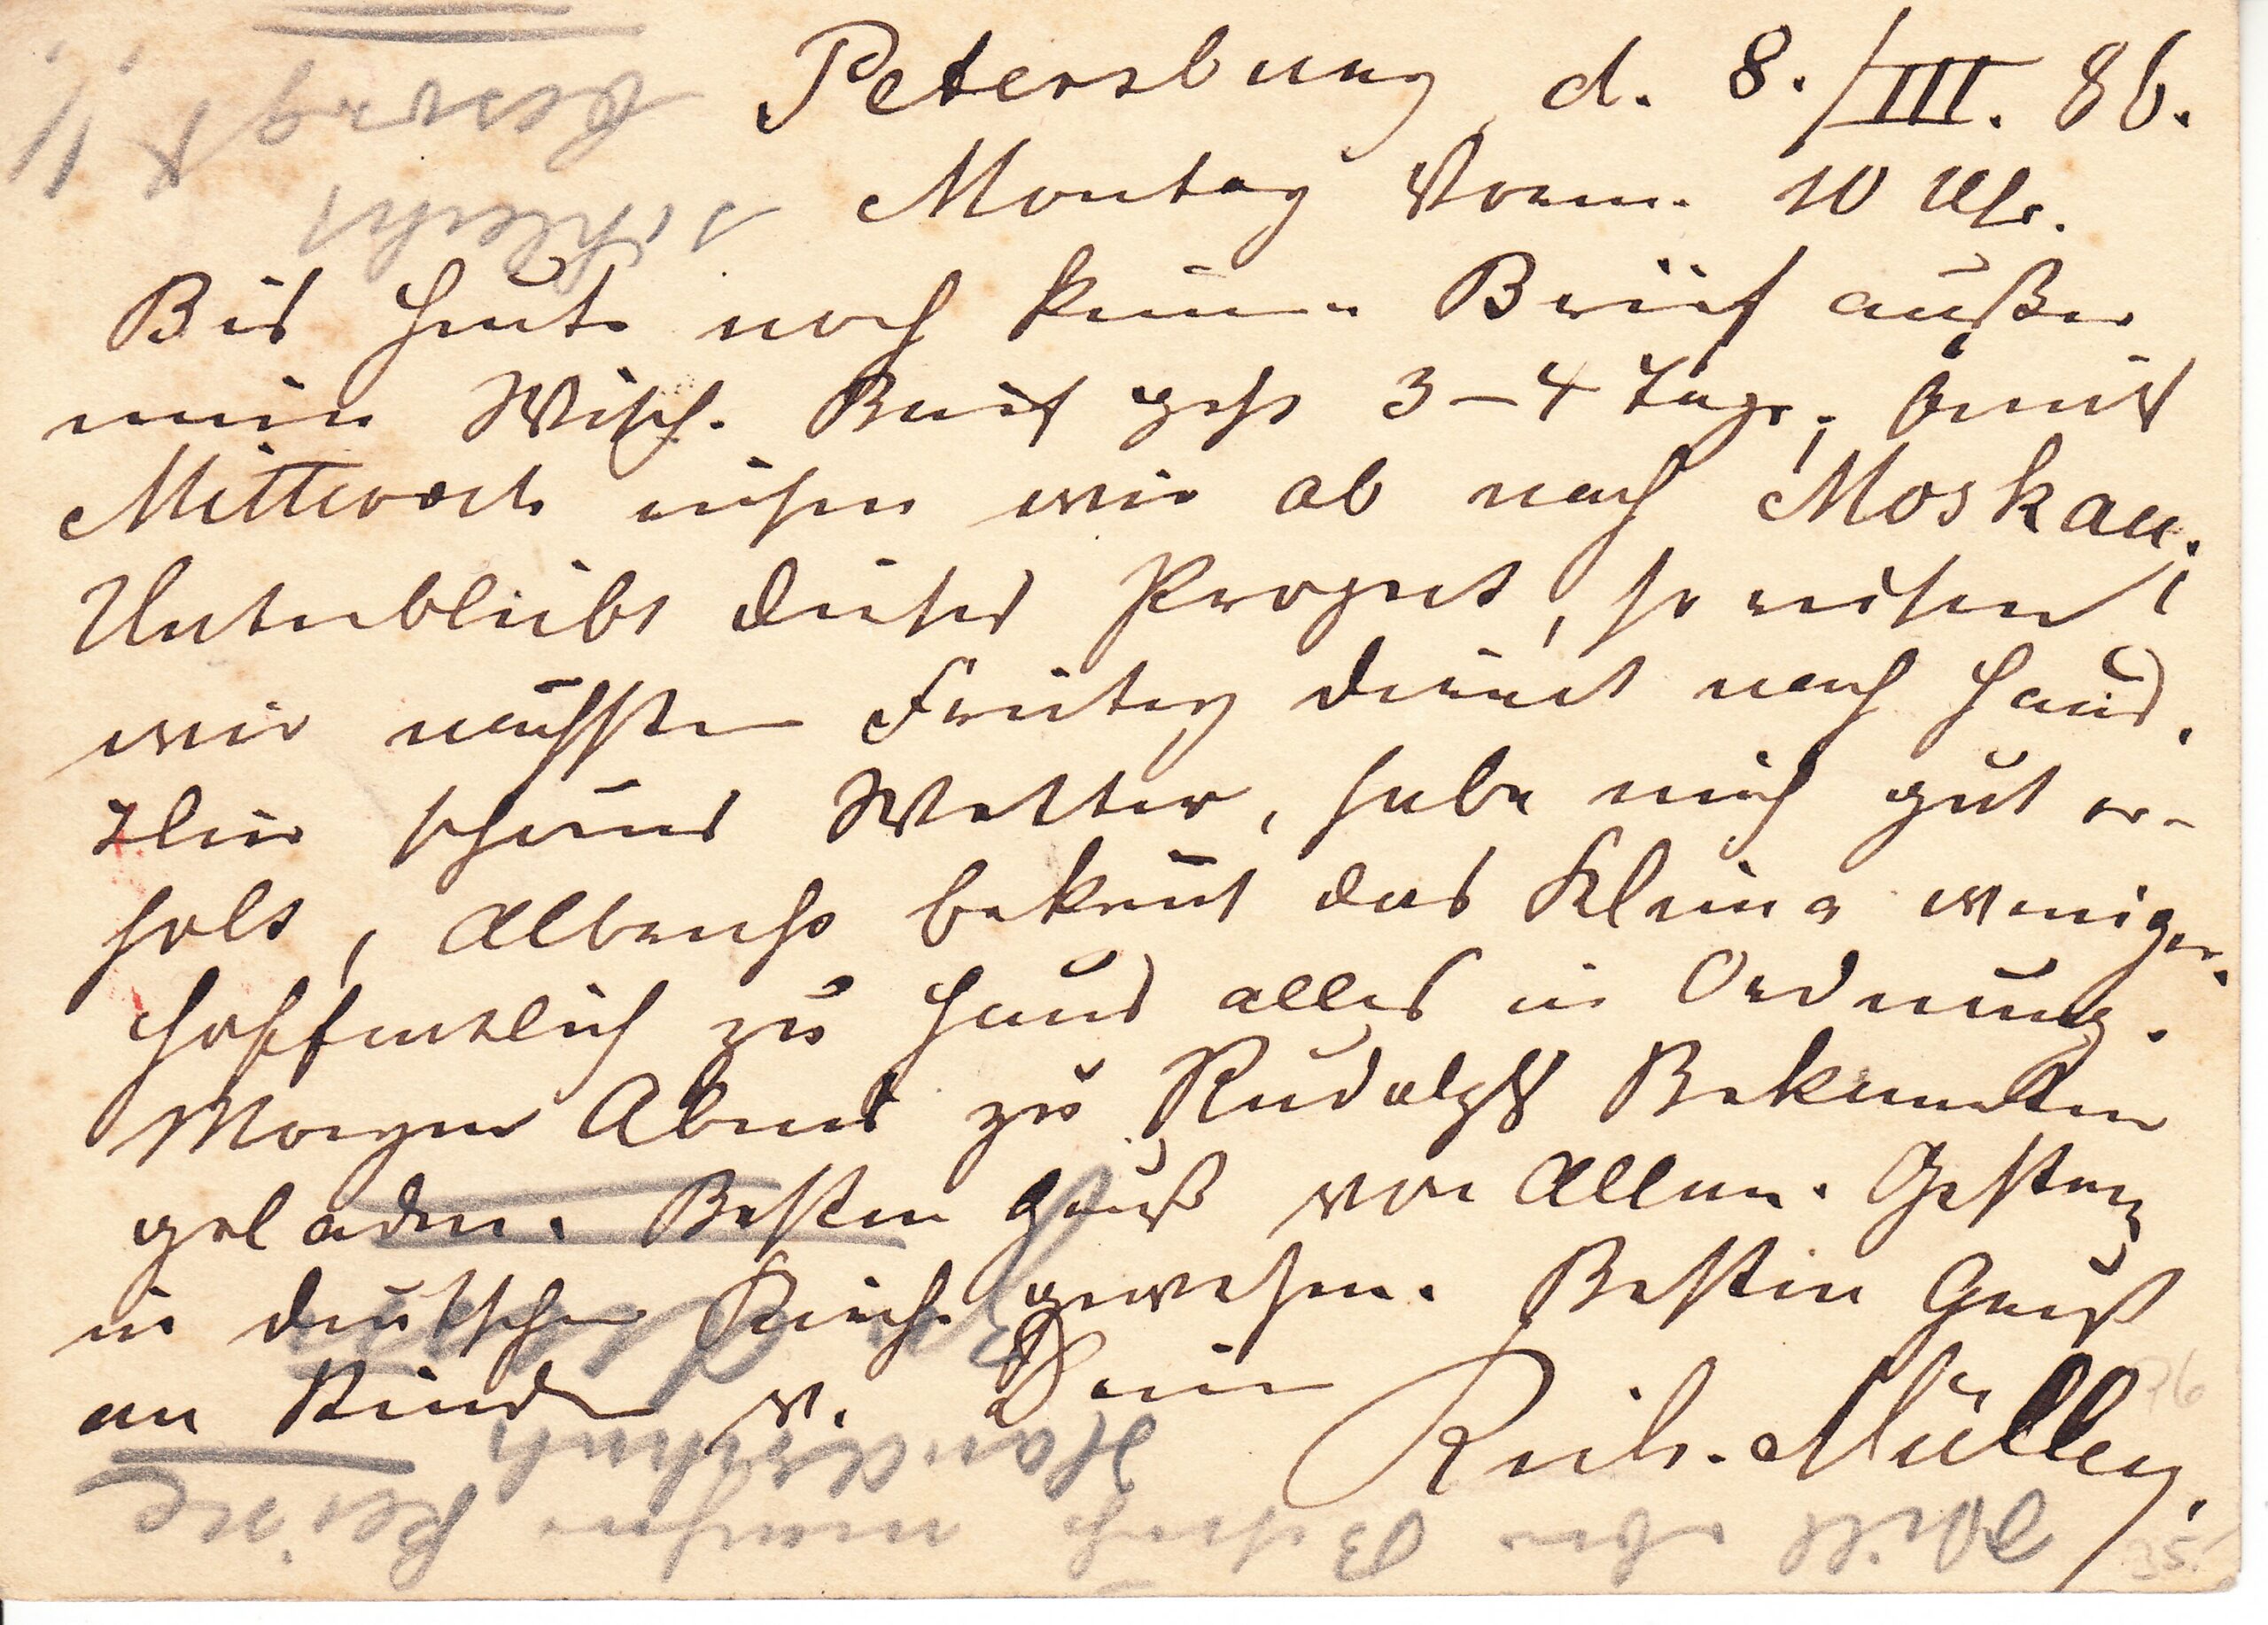 Petersburg, d. 8./III. 86.
Montag Vorm. 10 Uhr.
Bis heute noch keinen Brief außer
mein Wisch. Brief geht 3–4 Tage,
Mittwoch reisen wir ab nach Moskau.
Unterbleibt dieses Project, so reisen
wir nächsten Freitag direct nach Haus.
Hier schönes Wetter, habe mich gut er-
holt, Albrecht bekomt das Klima weniger.
Hoffentlich zu Haus alles in Ordnung.
Morgen Abend zu Rudolphs Bekannten
geladen. Besten Gruß von Allen. Gestern
in deutscher Kirche gewesen. Besten Gruß
an Kinder v. Dein
Müller.
besorgt
schlecht
keine